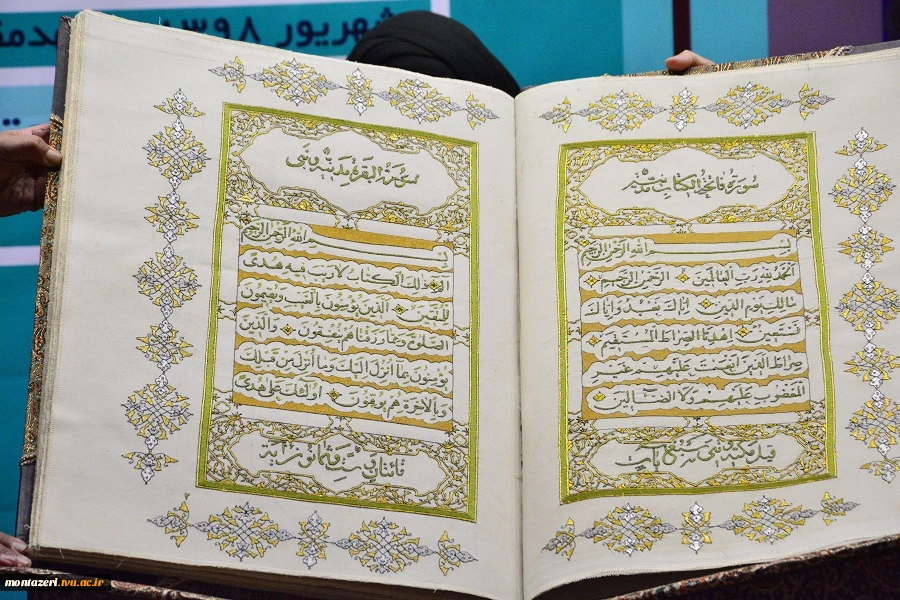 شهریور ۱۳۹۸
سورة فاتحة الكتاب
بسم الله الرحمن الرحيم
الحمد لله رب العالمين الرحمن الرحيم
مالك يوم الدين اياك نعبد واياك
نستعين اهدنا الصراط المستقيم
صراط الذين انعمت عليهم غير
المغضوب عليهم ولا الضالين
سورة البقرة مدنية وهي
بسم الله الرحمن الرحيم
الم ذلك الكتاب لا ريب فيه هدى
للمتقين الذين يؤمنون بالغيب ويقيمون
الصلوة ومما رزقناهم ينفقون والذين
يؤمنون بما أنزل إليك وما أنزل من قبلك
وبالآخرة هم يوقنون أولئك على هدى
مائتان وست وثمانون آية
montazeri.tvu.ac.ir